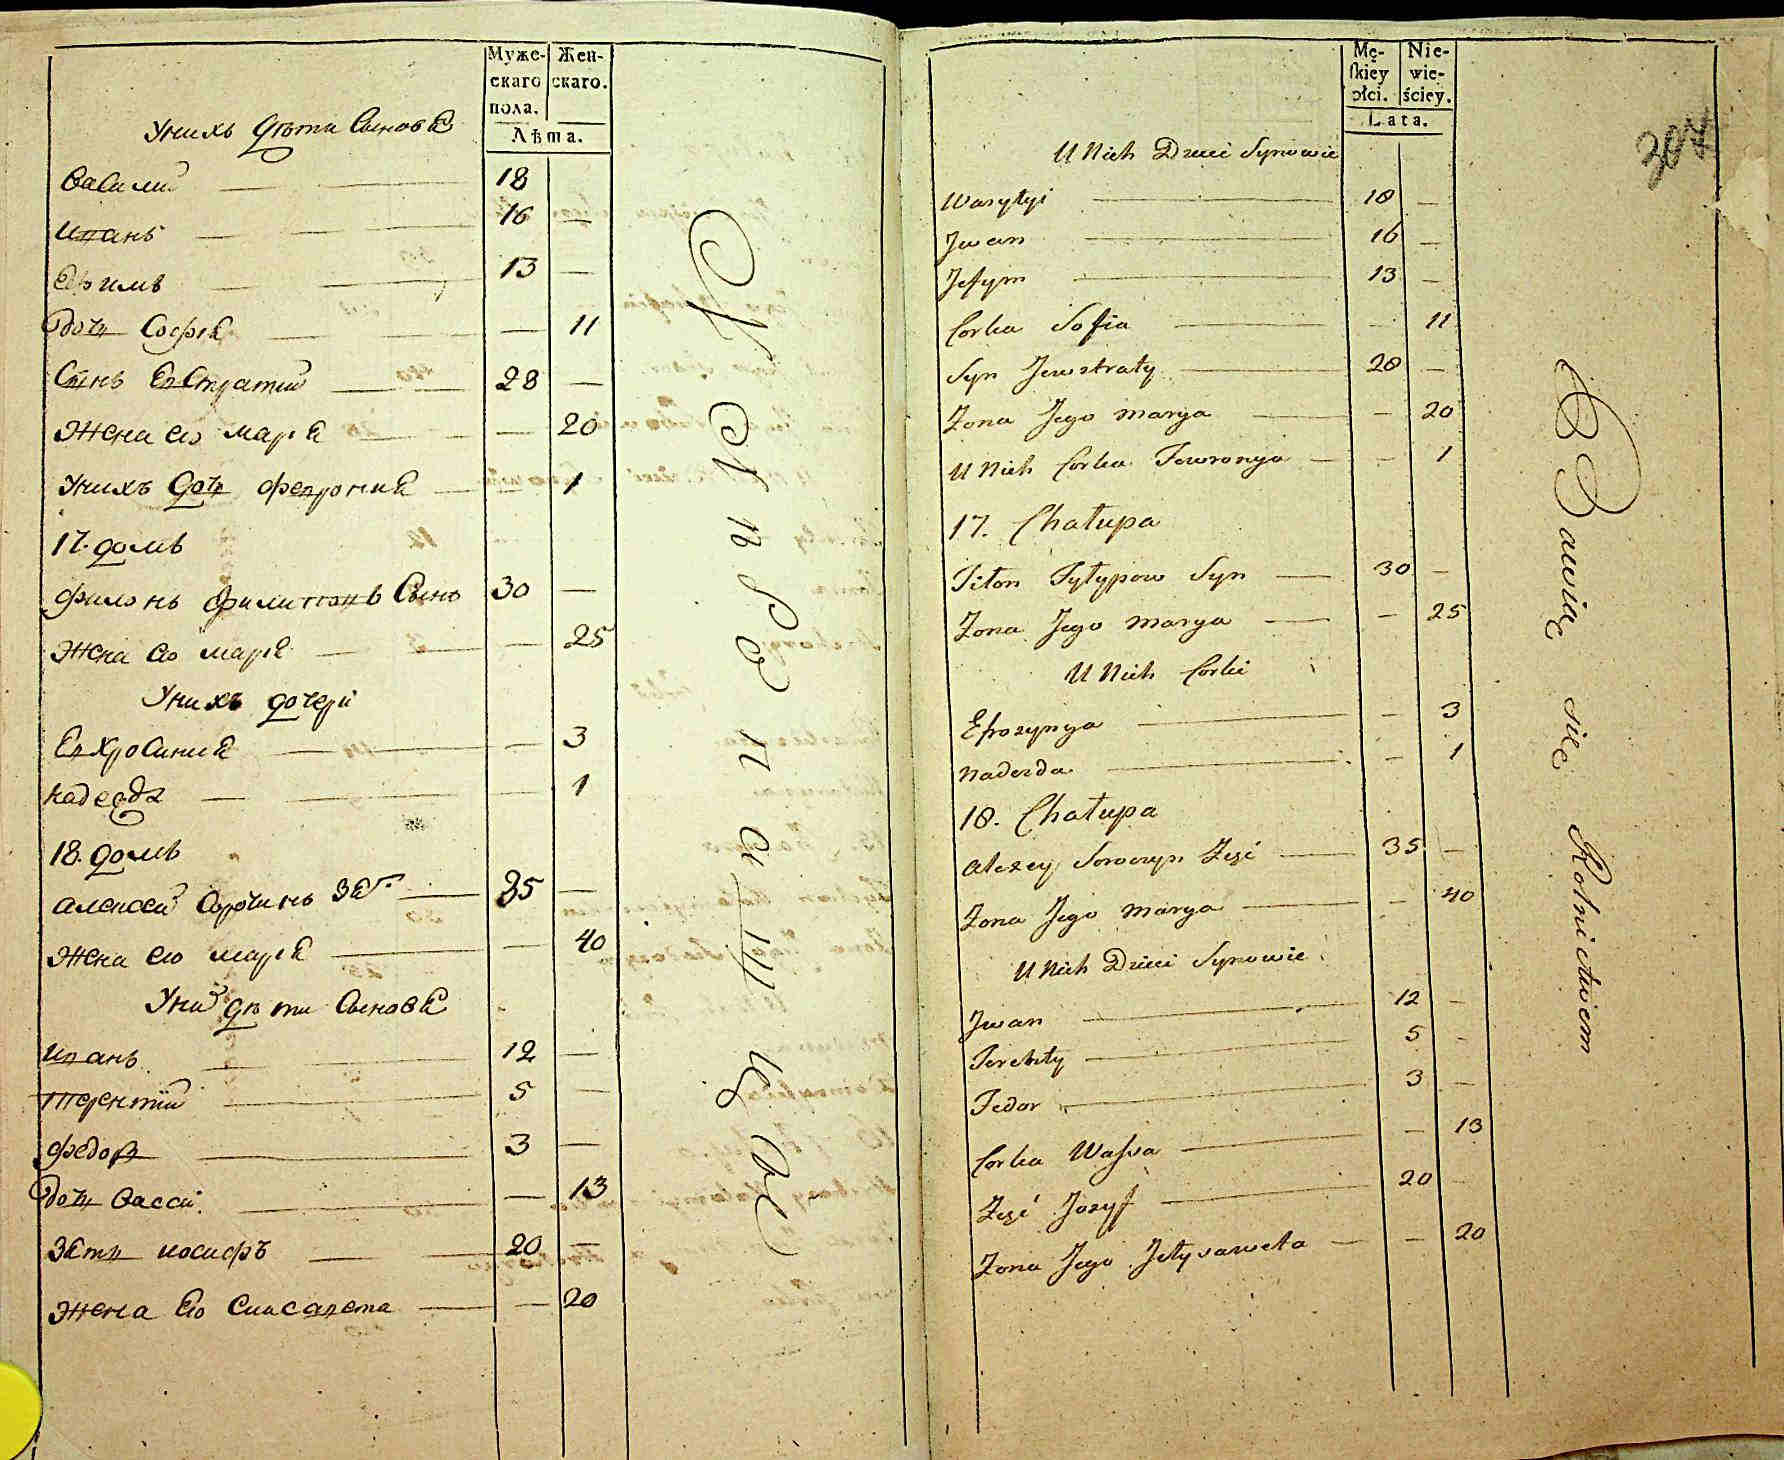 Муже-
скаго
пола.
Жен-
скаго.
Лѣта.
Унихъ Дѣти Сыновя
Василий — 18
Иванъ — 16 —
Ефимъ — 13 —
Дочь София — — 11
Сынъ Евстратий — 28 —
Жена его Мария — — 20
Унихъ Дочь Феврония — — 1
17. домъ
Филонъ Филиповъ Сынъ 30 —
Жена его Мария — — 25
Унихъ дочери
Евхросиния — — 3
Надежда — — 1
18. домъ
Алексей Сорочинъ Зят. — 35 —
Жена его Мария — — 40
Уних дѣти Сыновя
Иванъ — 12 —
Терентий — 5 —
Федор — 3 —
Дочь Васса — — 13
Зять иосифъ — 20 —
Жена Его Елисавета — — 20
Mę-
skiey
płci.
Nie-
wie-
ściey.
Lata.
307
U Nich Dzieci Synowie
Wasylyi — 18 —
Jwan — 16 —
Jefym — 13 —
Corka Sofia — — 11
Syn Jewstraty — 28 —
Zona Jego Marya — — 20
U Nich Corka Fewronya — — 1
17. Chałupa
Filon Fylypow Syn — 30 —
Zona Jego Marya — — 25
U Nich Corki
Efrozynya — — 3
Nadezda — — 1
18. Chałupa
Alexey Soroczyn Zięć — 35 —
Zona Jego Marya — — 40
U Nich Dzieci Synowie
Jwan — 12 —
5 —
Fedor — 3 —
Corka Wassa — — 13
Zięć Jozyf — 20 —
Zona Jego Jelysaweta — — 20
Bawią się Rolnictwem